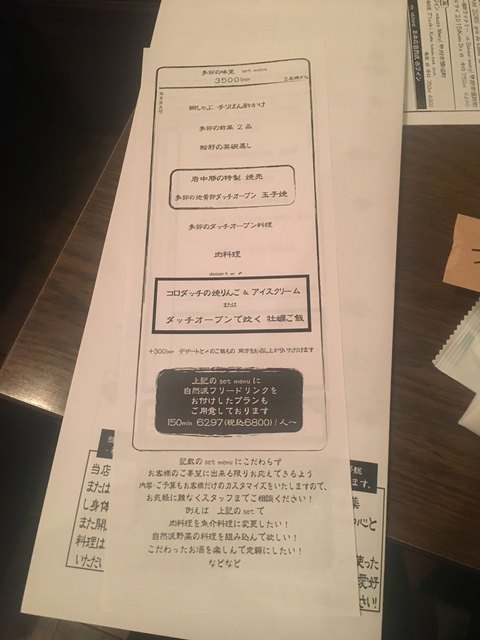 多鈴の味覚 set menu
3500/per
2名様から
当日注文可
鯛しゃぶ チリぽん酢かけ
多鈴の前菜 2品
鮟肝の茶碗蒸し
岩中豚の特製 焼売
多鈴の地養卵ダッチオーブン 玉子焼
多鈴のダッチオーブン料理
肉料理
dessert or 〆
コロダッチの焼りんご & アイスクリーム
または
ダッチオーブンで炊く 牡蠣ご飯
+300/per デザートと〆のご飯もの 両方お召し上がりいただけます
上記の set menu に
自然派フリードリンクを
お付けしたプランも
ご用意しております
150min 6297(税込6800)/人〜
記載の set menu にこだわらず
お客様のご要望に出来る限りお応えできるよう
内容・ご予算もお客様だけのカスタマイズをいたしますので、
お気軽に難なくスタッフまでご相談ください!
例えば 上記の set で
肉料理を魚介料理に変更したい!
自然派野菜の料理を組み込んで欲しい!
こだわったお酒を楽しんで定額にしたい!
などなど
当店
または
し身体
また開
料理は
いただい
ます。
薬
心と
使った
愛好
さい!